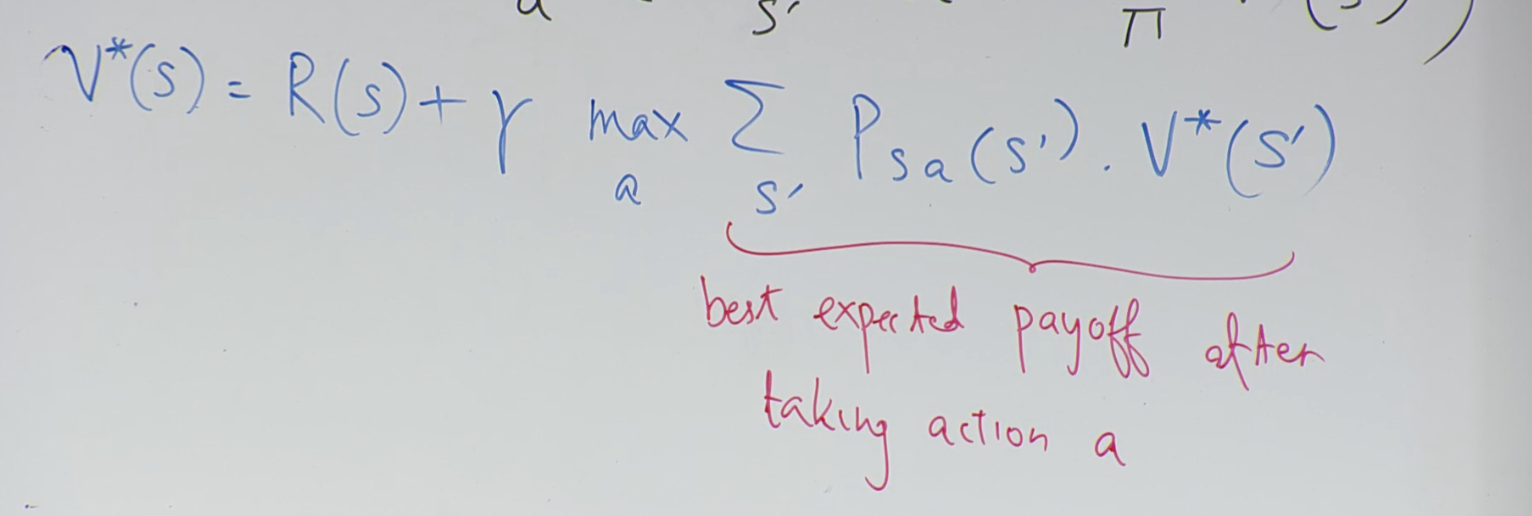 a s' π (s))
V*(s) = R(s) + γ max_a Σ_s' P_sa(s') . V*(s')
best expected payoff after
taking action a